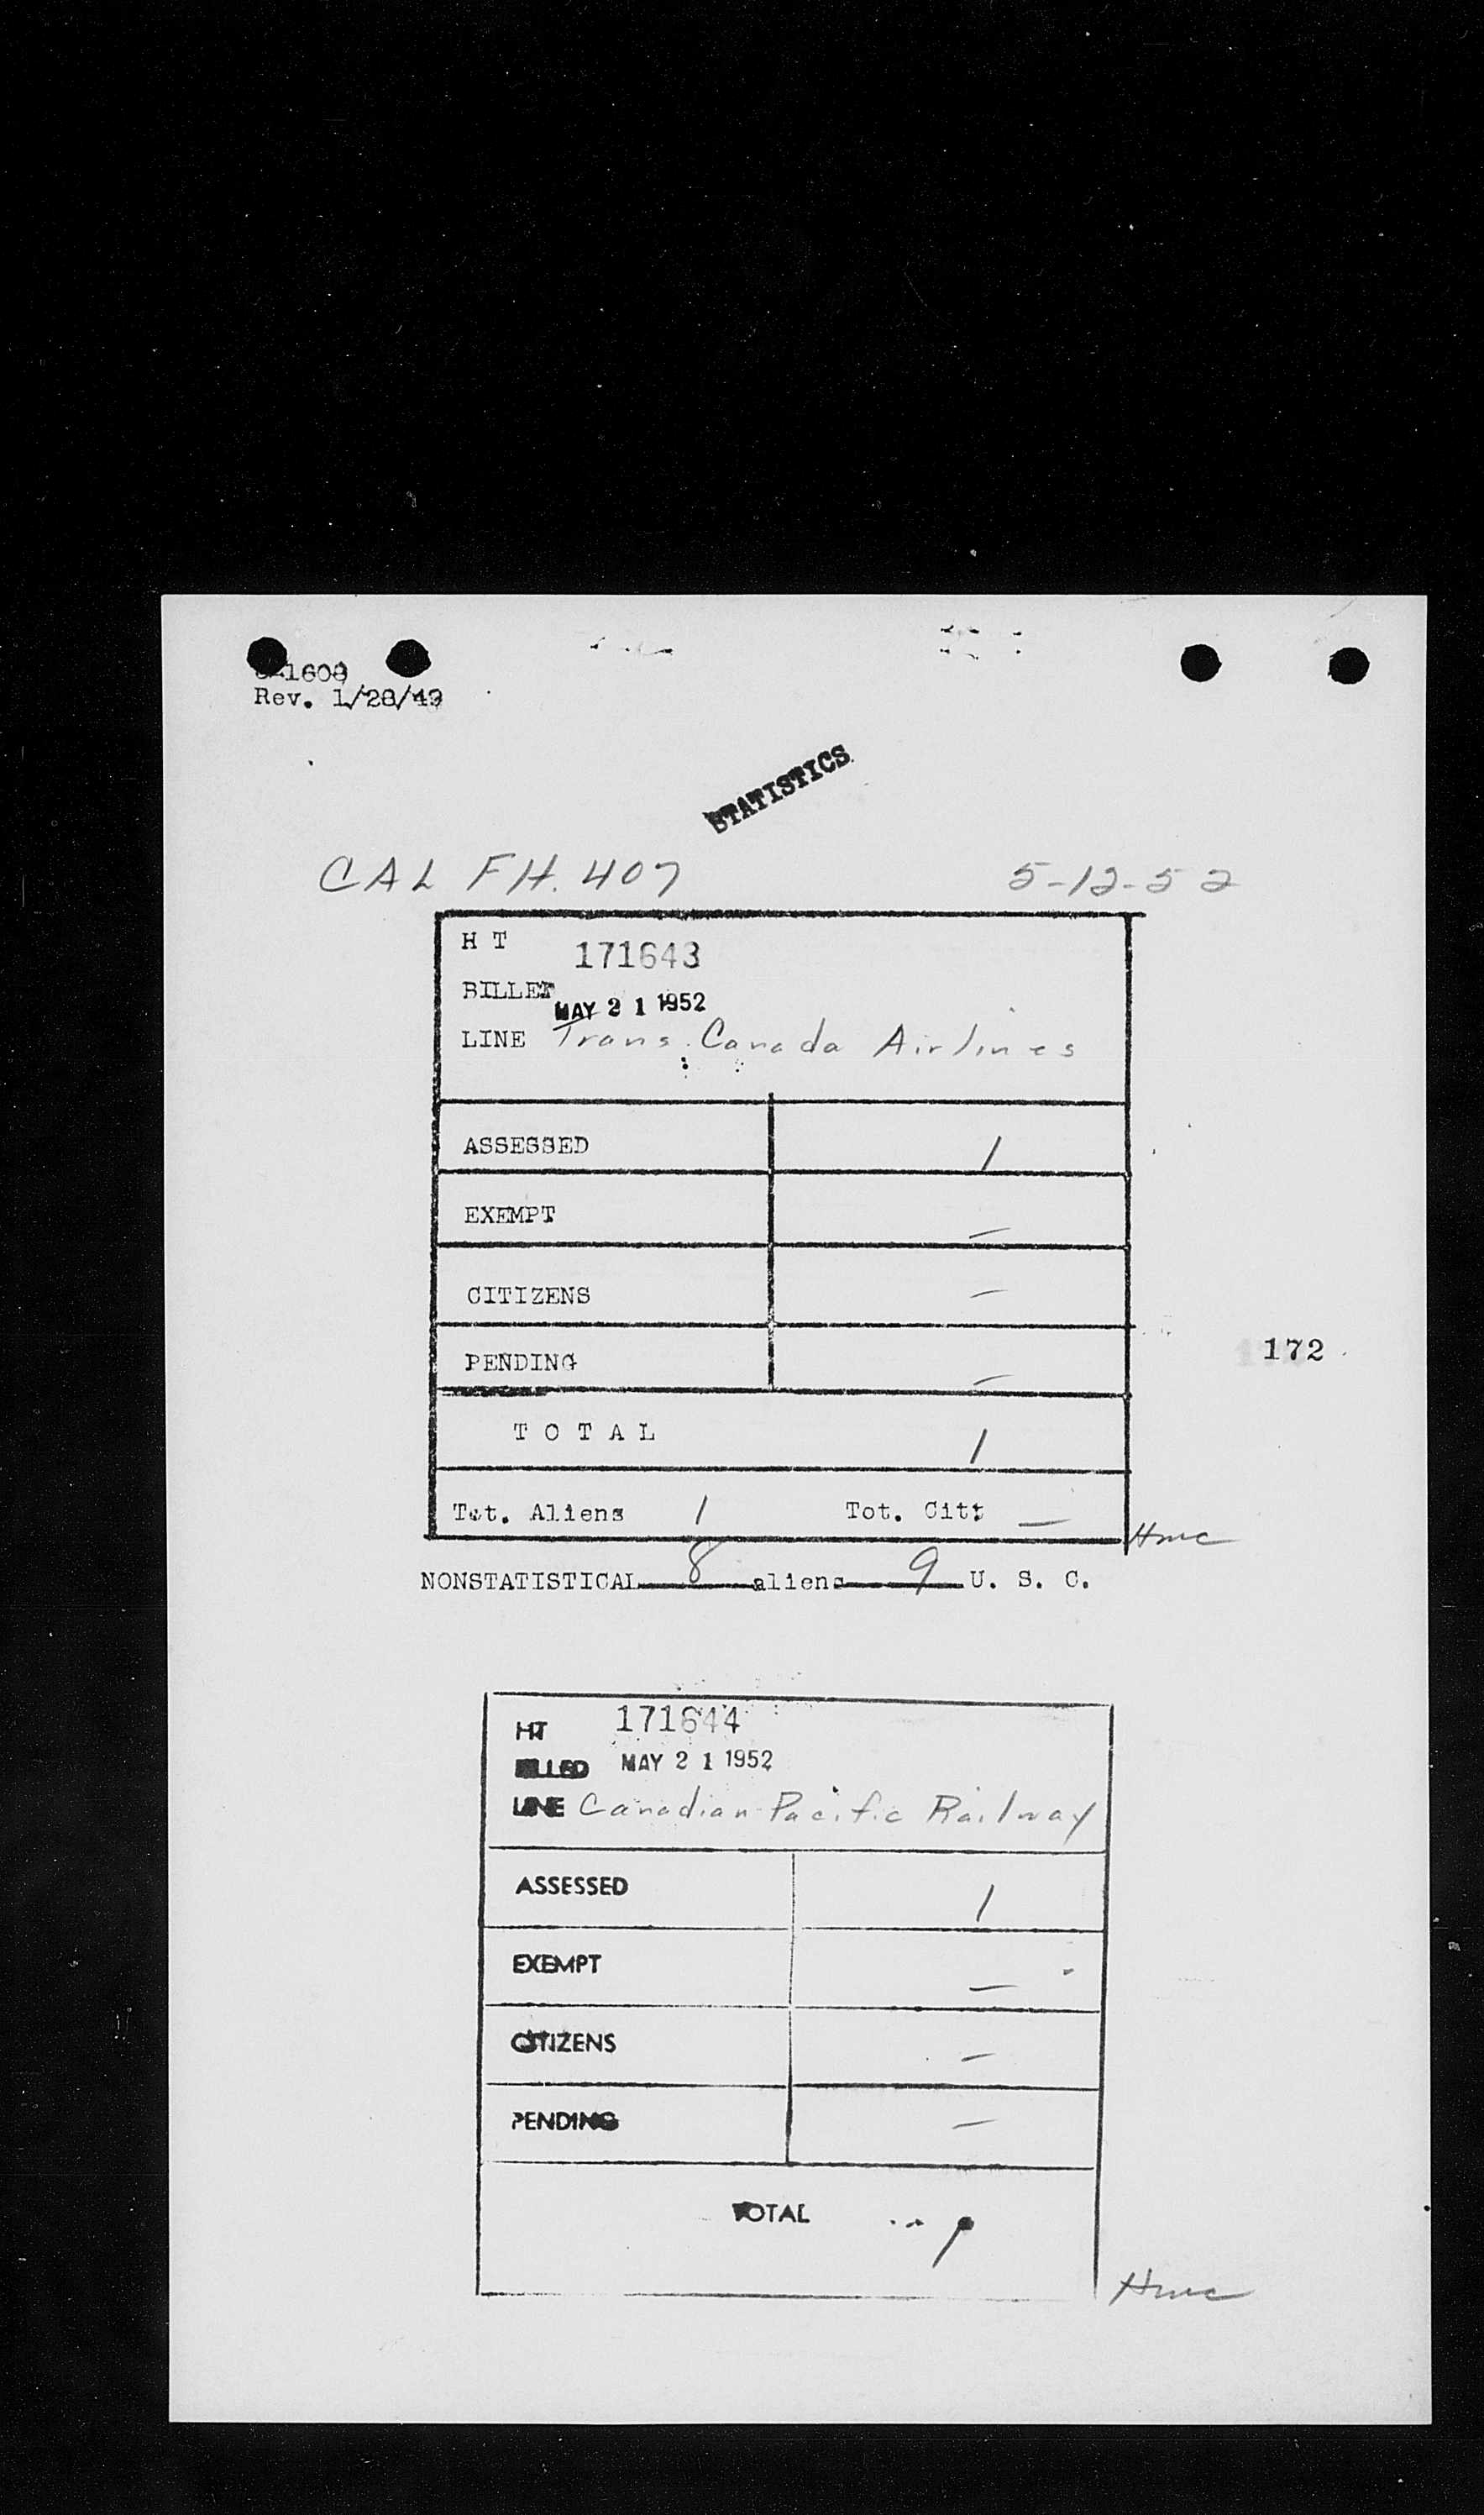 1608
Rev. 1/28/49
STATISTICS
CAL FH. 407 5-12-52
H T 171643
BILLET MAY 21 1952
LINE Trans Canada Airlines
ASSESSED 1
EXEMPT —
CITIZENS —
PENDING —
172
T O T A L 1
Tot. Aliens 1 Tot. Citz —
Hmc
NONSTATISTICAL 8 aliens 9 U. S. C.
HT 171644
BILLED MAY 21 1952
LINE Canadian Pacific Railway
ASSESSED 1
EXEMPT —
CITIZENS —
PENDING —
TOTAL 1
Hmc